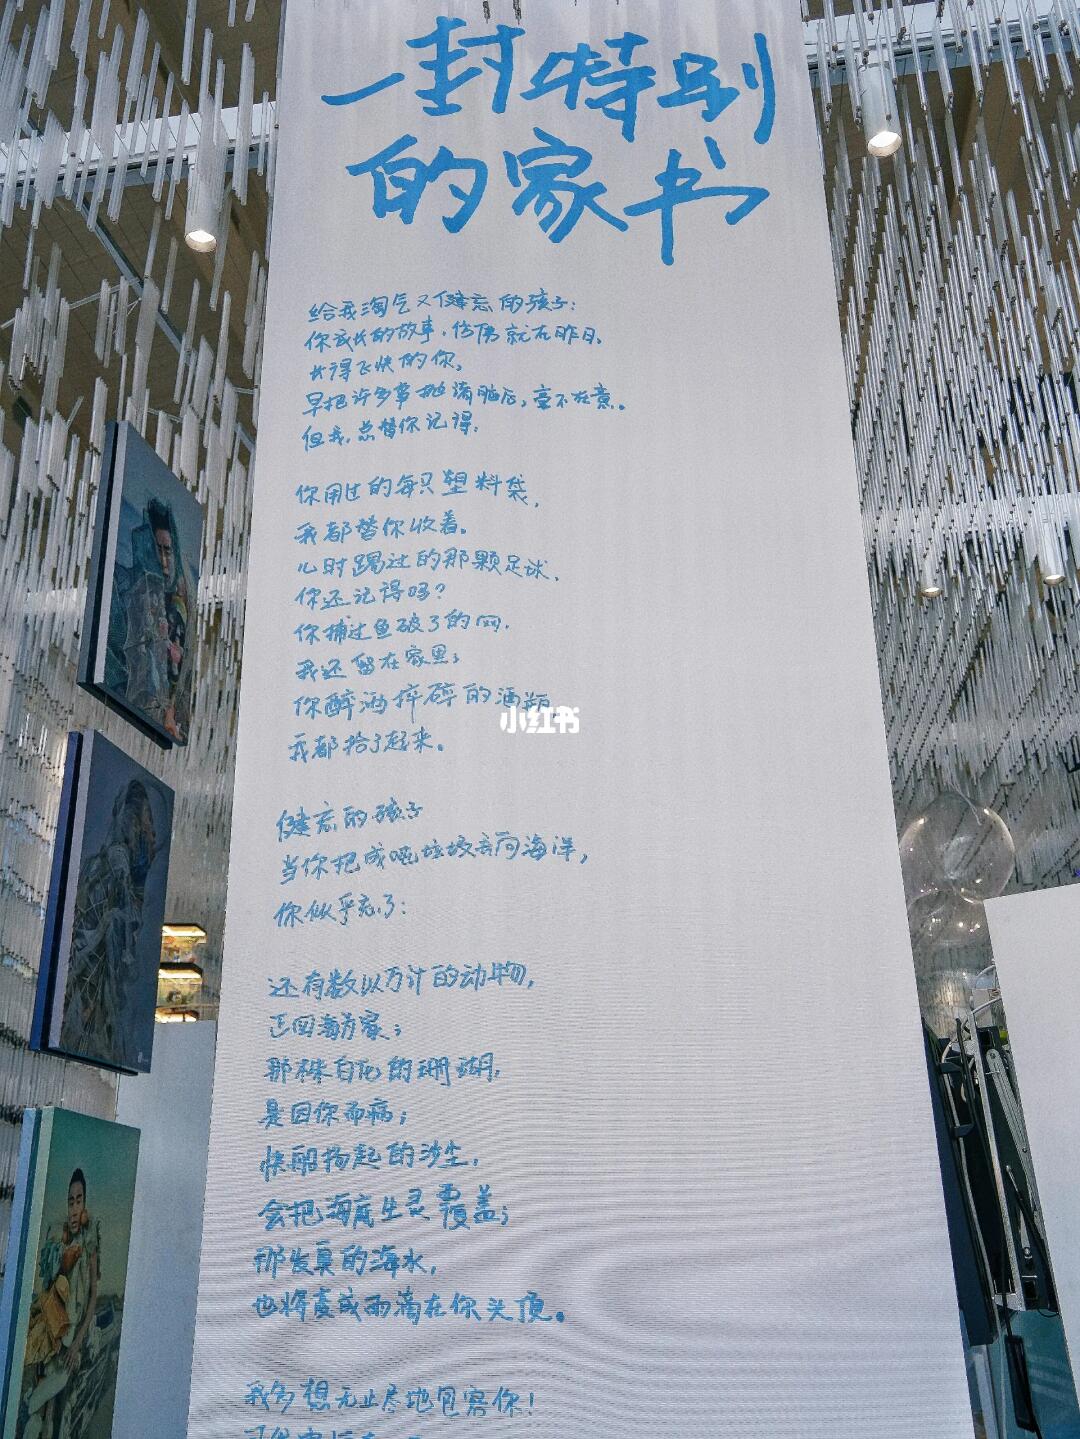 一封特别
的家书
给我淘气又健忘的孩子：
你成长的故事，仿佛就在昨日，
长得飞快的你，
早把许多事抛诸脑后，毫不在意。
但我，总替你记得，
你用过的每只塑料袋，
我都替你收着。
儿时踢过的那颗足球，
你还记得吗？
你捕过鱼破了的网，
我还留在家里；
你醉酒摔碎的酒瓶，
我都拾了起来。
小红书
健忘的孩子
当你把成吨垃圾丢向海洋，
你似乎忘了：
还有数以万计的动物，
正四海为家；
那株白化的珊瑚，
是因你而病；
快船扬起的沙尘，
会把海底生灵覆盖；
那发臭的海水，
也将变成雨滴在你头顶。
我多想无止尽地包容你！